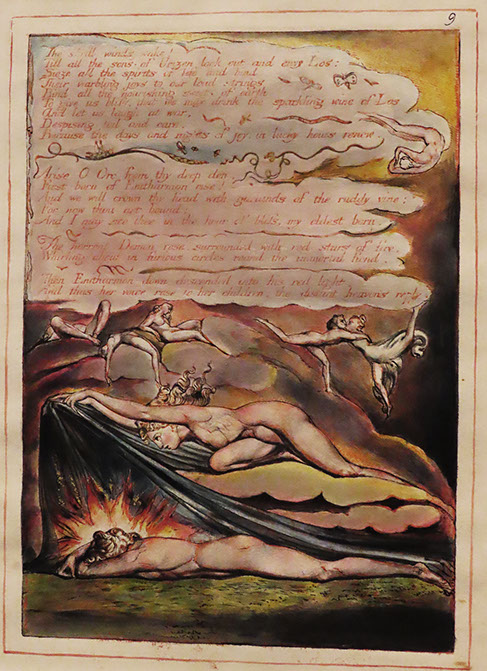 9
The shrill winds wake!
Till all the sons of Urizen look out and envy Los:
Sieze all the spirits of life and bind
Their warbling joys to our loud strings
Bind all the nourishing sweets of earth
To give us bliss, that we may drink the sparkling wine of Los
And let us laugh at war,
Despising toil and care,
Because the days and nights of joy, in lucky hours renew.
Arise O Orc from thy deep den,
First born of Enitharmon rise!
And we will crown thy head with garlands of the ruddy vine;
For now thou art bound;
And I may see thee in the hour of bliss, my eldest born.
The horrent Demon rose, surrounded with red stars of fire,
Whirling about in furious circles round the immortal fiend.
Then Enitharmon down descended into his red light,
And thus her voice rose to her children, the distant heavens reply.